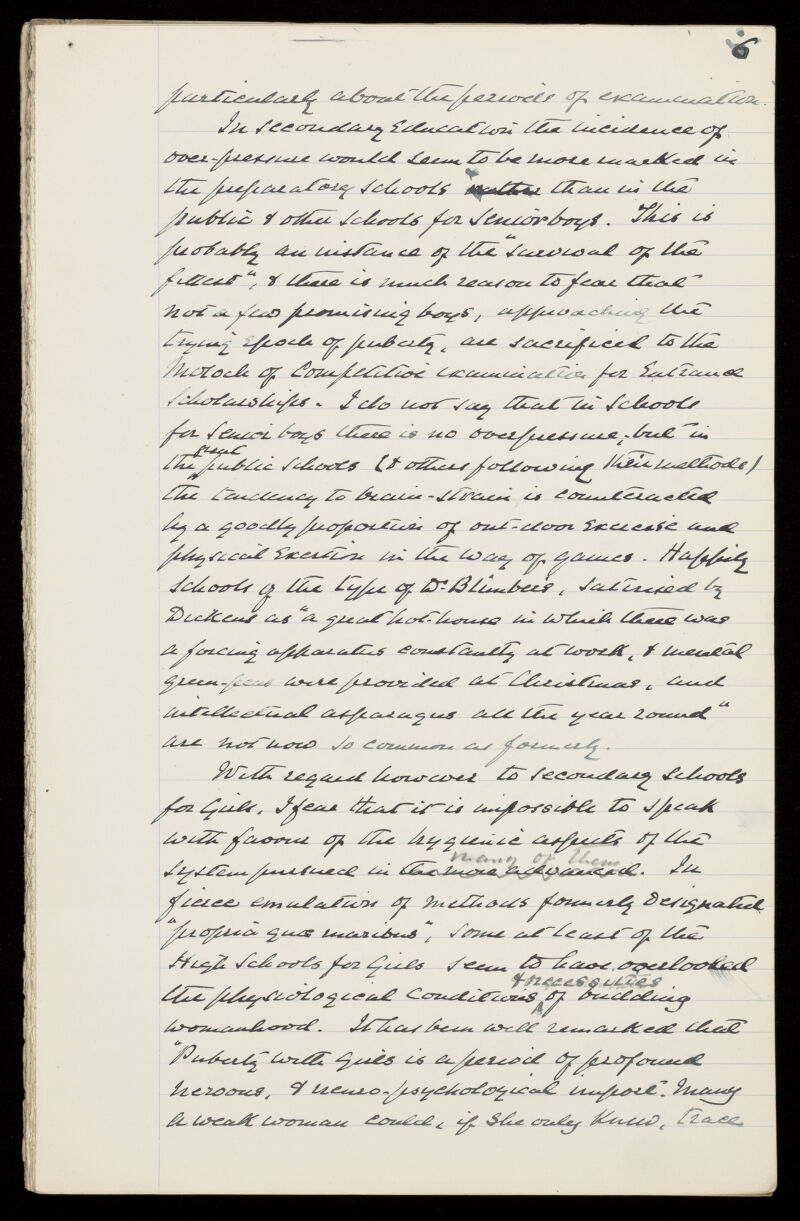 6
particularly about the periods of examination.
In Secondary Education the incidence of
over-pressure would seem to be more marked in
the preparatory schools rather than in the
public & other schools for Senior boys. This is
probably an instance of the "survival of the
fittest", & there is much reason to fear that
not a few promising boys, approaching the
trying epoch of puberty, are sacrificed to the
Moloch of Competitive examination for Entrance
Scholarships. I do not say that in Schools
for Senior boys there is no overpressure; but in
the great public schools (& others following their methods)
the tendency to brain-strain is counteracted
by a goodly proportion of out-door Exercise and
physical Exertion in the way of games. Happily
Schools of the type of Dr. Blimbers, satirised by
Dickens as "a great hot-house in which there was
a forcing apparatus constantly at work, & mental
green-peas were provided at Christmas, and
intellectual asparagus all the year round"
are not now so common as formerly.
With regard however to secondary schools
for Girls, I fear that it is impossible to speak
with favour of the hygienic aspects of the
many of them
system pursued in the more advanced. In
fierce emulation of methods formerly designated
"propria quæ maribus", some at least of the
High Schools for Girls seem to have overlooked
& necessities
the physiological conditions of building
womanhood. It has been well remarked that
"Puberty with Girls is a period of profound
nervous, & neuro-psychological import". Many
a weak woman could, if she only knew, trace